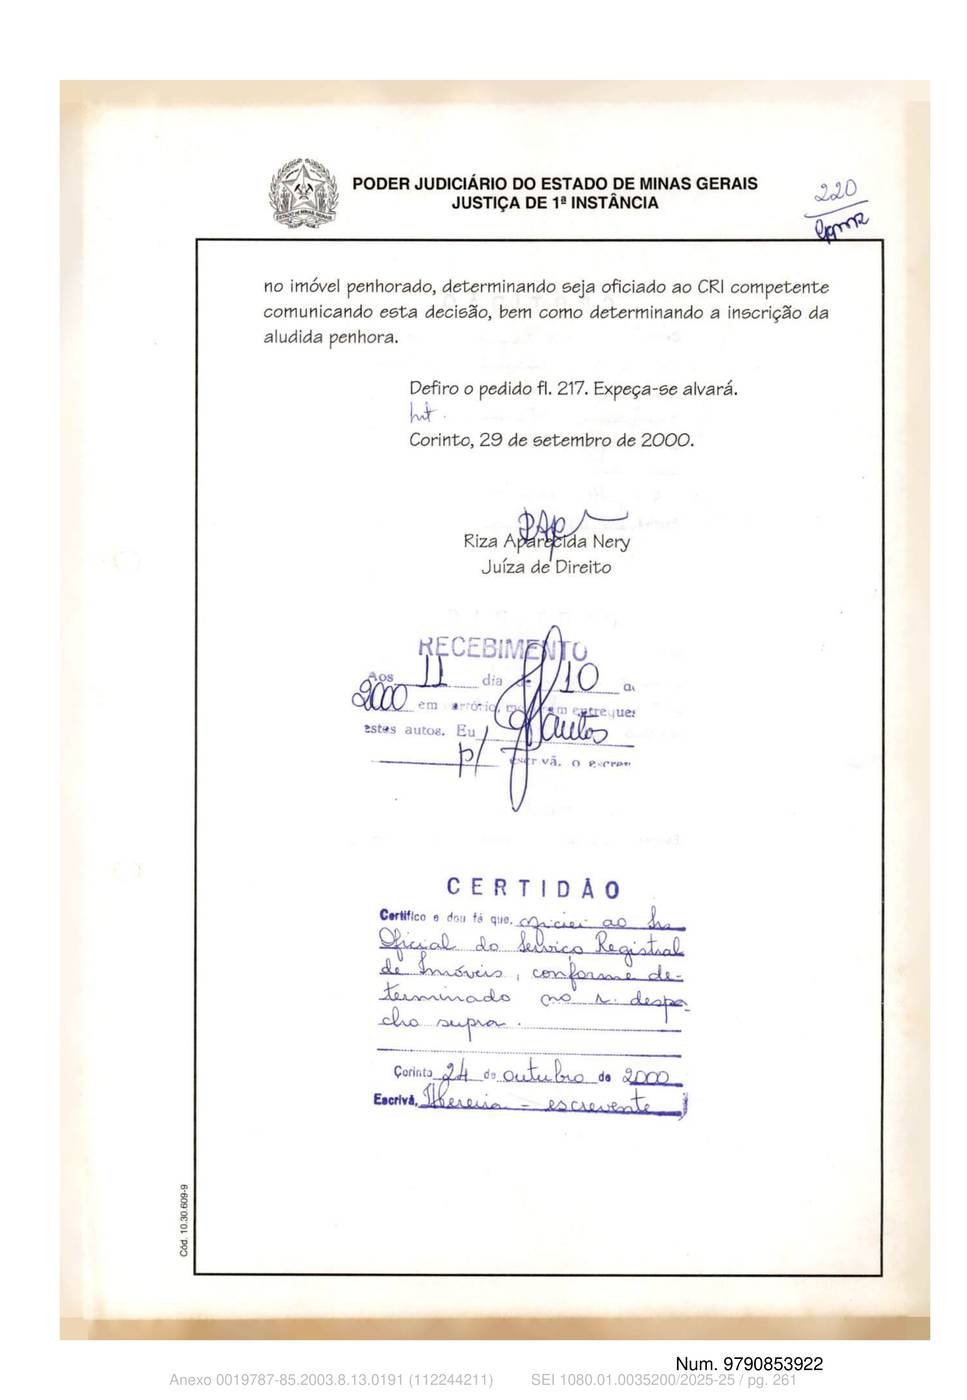 PODER JUDICIÁRIO DO ESTADO DE MINAS GERAIS
JUSTIÇA DE 1ª INSTÂNCIA
220
no imóvel penhorado, determinando seja oficiado ao CRI competente
comunicando esta decisão, bem como determinando a inscrição da
aludida penhora.
Defiro o pedido fl. 217. Expeça-se alvará.
Int.
Corinto, 29 de setembro de 2000.
Riza Aparecida Nery
Juíza de Direito
RECEBIMENTO
Aos 11 dia de 10
2000 em entregues
estes autos. Eu
p/ escrivã, o
CERTIDÃO
Certifico e dou fé que, oficiei ao Sr.
Oficial do Serviço Registral
de Imóveis, conforme de-
terminado no r. despa-
cho supra.
Corinto 24 de outubro de 2000
Escrivã, escrevente
Cód. 10.30.609-9
Num. 9790853922
Anexo 0019787-85.2003.8.13.0191 (112244211) SEI 1080.01.0035200/2025-25 / pg. 261